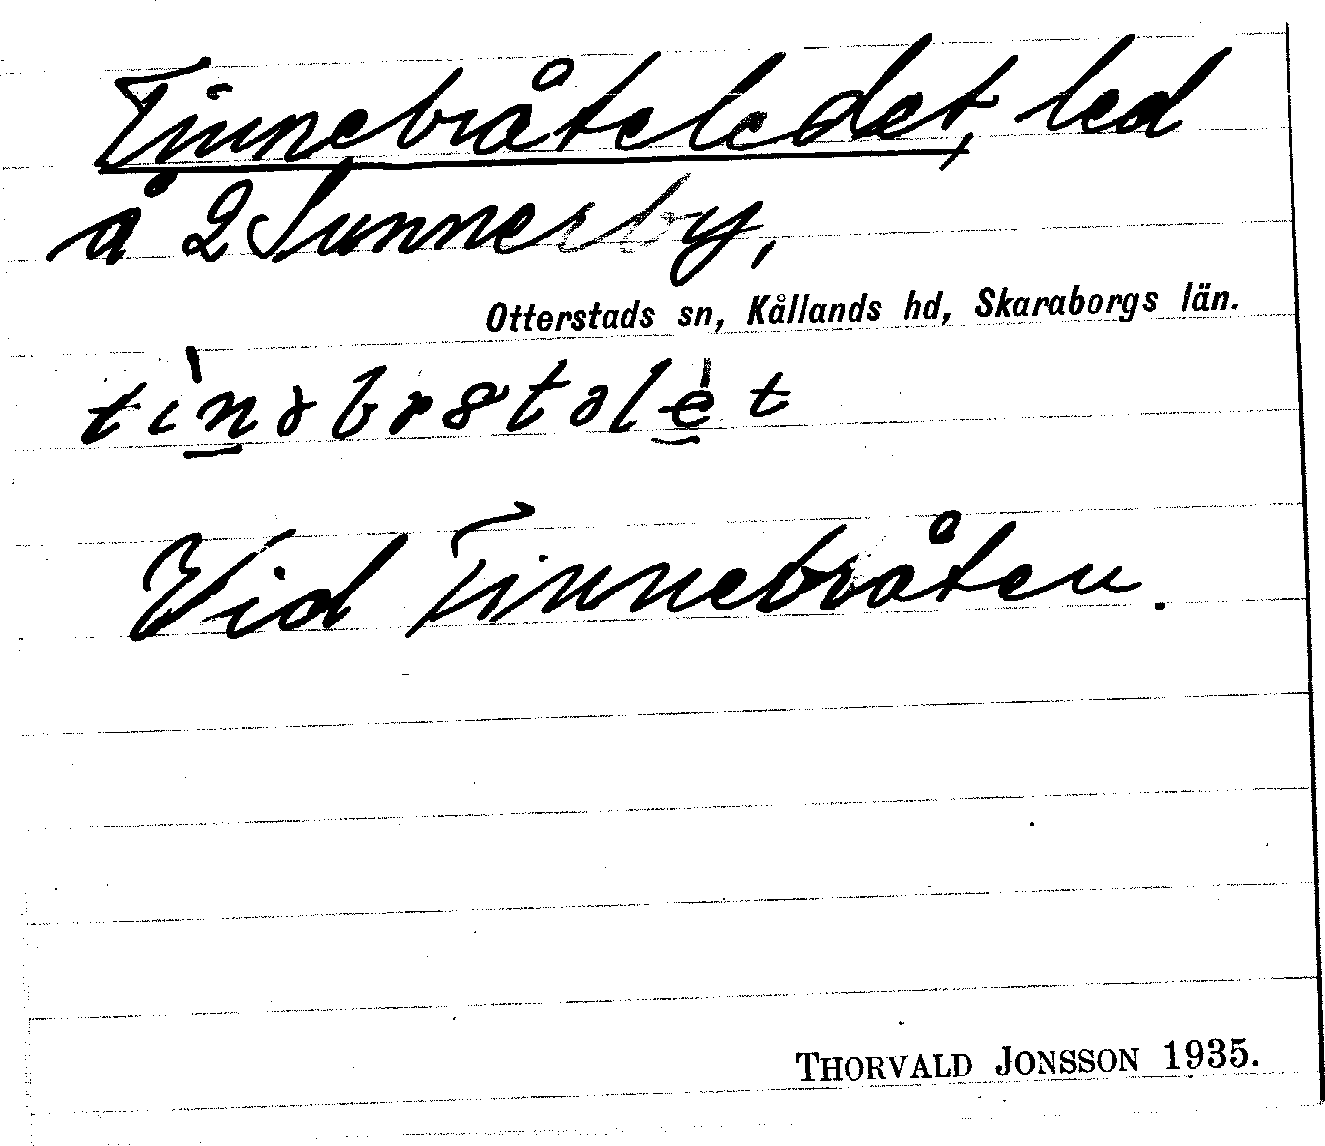 Tinnebråteledet, led
å 2 Sunnerby,
Otterstads sn, Kållands hd, Skaraborgs län.
Vid Tinnebråten.
THORVALD JONSSON 1935.